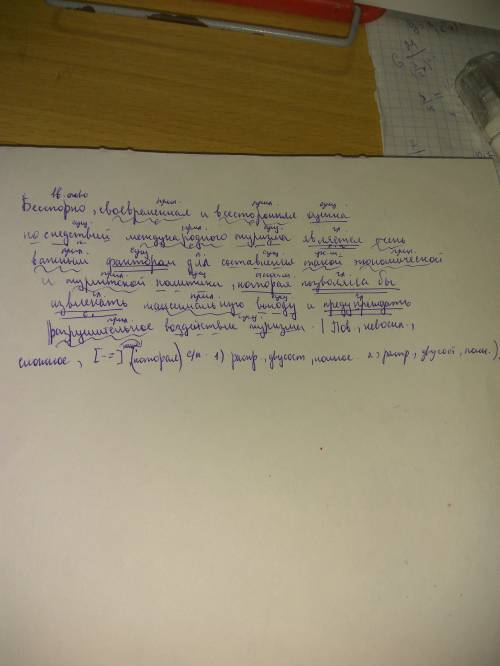 вв. слово
прил. прил. сущ.
Бесспорно, своевременная и всесторонняя оценка
сущ. прил. сущ. гл.
последствий международного туризма является очень
прил. сущ. сущ. прил.
важным фактором для составления такой экономической
прил. сущ. гл.
и туристской политики, которая позволяла бы
гл. прил. сущ. гл.
извлекать максимальную выгоду и предупреждать
прил. сущ.
разрушительное воздействие туризма. (Пов., невоскл.,
сложное, [-=], (которая) с/п. 1) распр., двусост., полное. 2) распр., двусост., полн.)